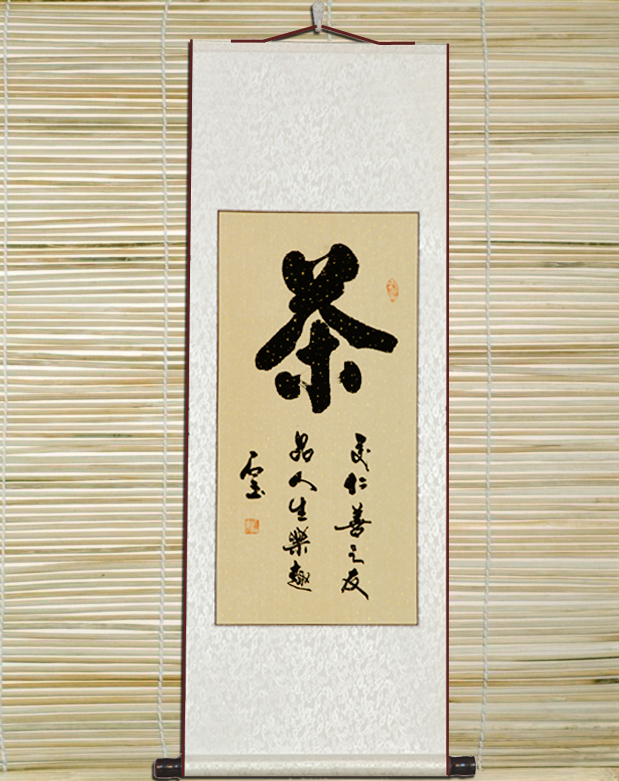 茶
交仁善之友
品人生樂趣
石玉